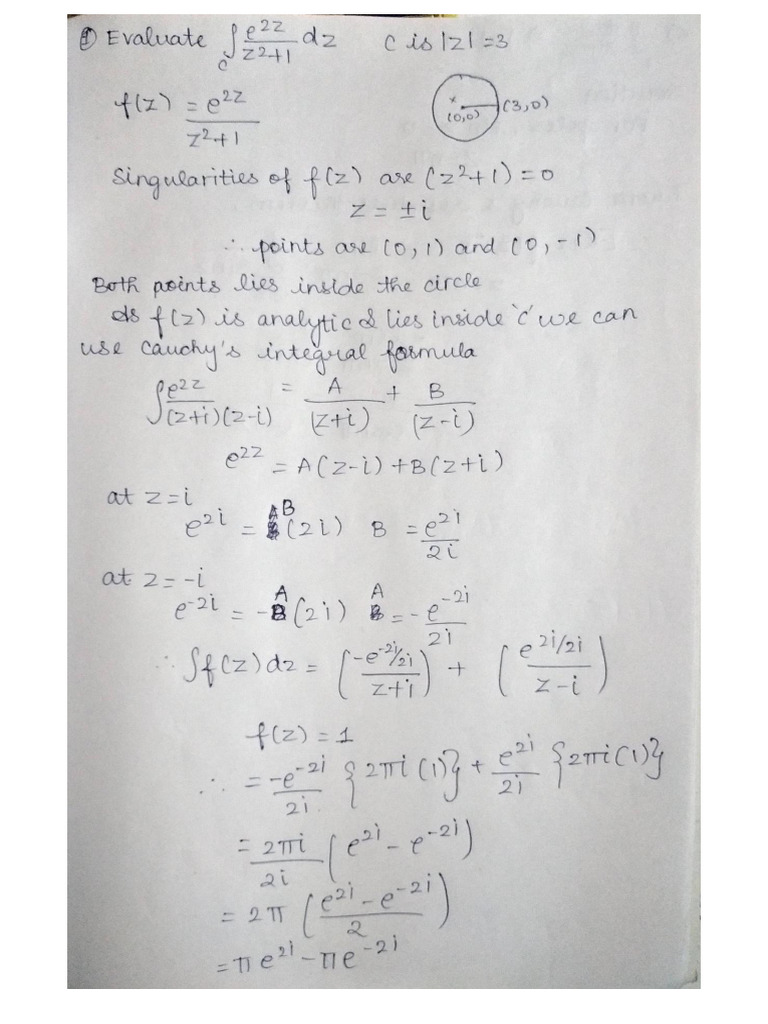 ① Evaluate ∫_C e^{2z}/(z²+1) dz    C is |z| = 3
f(z) = e^{2z}/(z²+1)    (0,0) (3,0)
Singularities of f(z) are (z²+1) = 0
z = ±i
∴ points are (0, 1) and (0, -1)
Both points lies inside the circle
As f(z) is analytic & lies inside 'c' we can
use Cauchy's integral formula
∫ e^{2z}/((z+i)(z-i)) = A/(z+i) + B/(z-i)
e^{2z} = A(z-i) + B(z+i)
at z=i
e^{2i} = B(2i)    B = e^{2i}/2i
at z = -i
e^{-2i} = -A(2i)    A = -e^{-2i}/2i
∴ ∫f(z)dz = ((-e^{-2i}/2i)/(z+i)) + ((e^{2i}/2i)/(z-i))
f(z) = 1
∴ = -e^{-2i}/2i {2πi(1)} + e^{2i}/2i {2πi(1)}
= 2πi/2i (e^{2i} - e^{-2i})
= 2π ((e^{2i} - e^{-2i})/2)
= πe^{2i} - πe^{-2i}